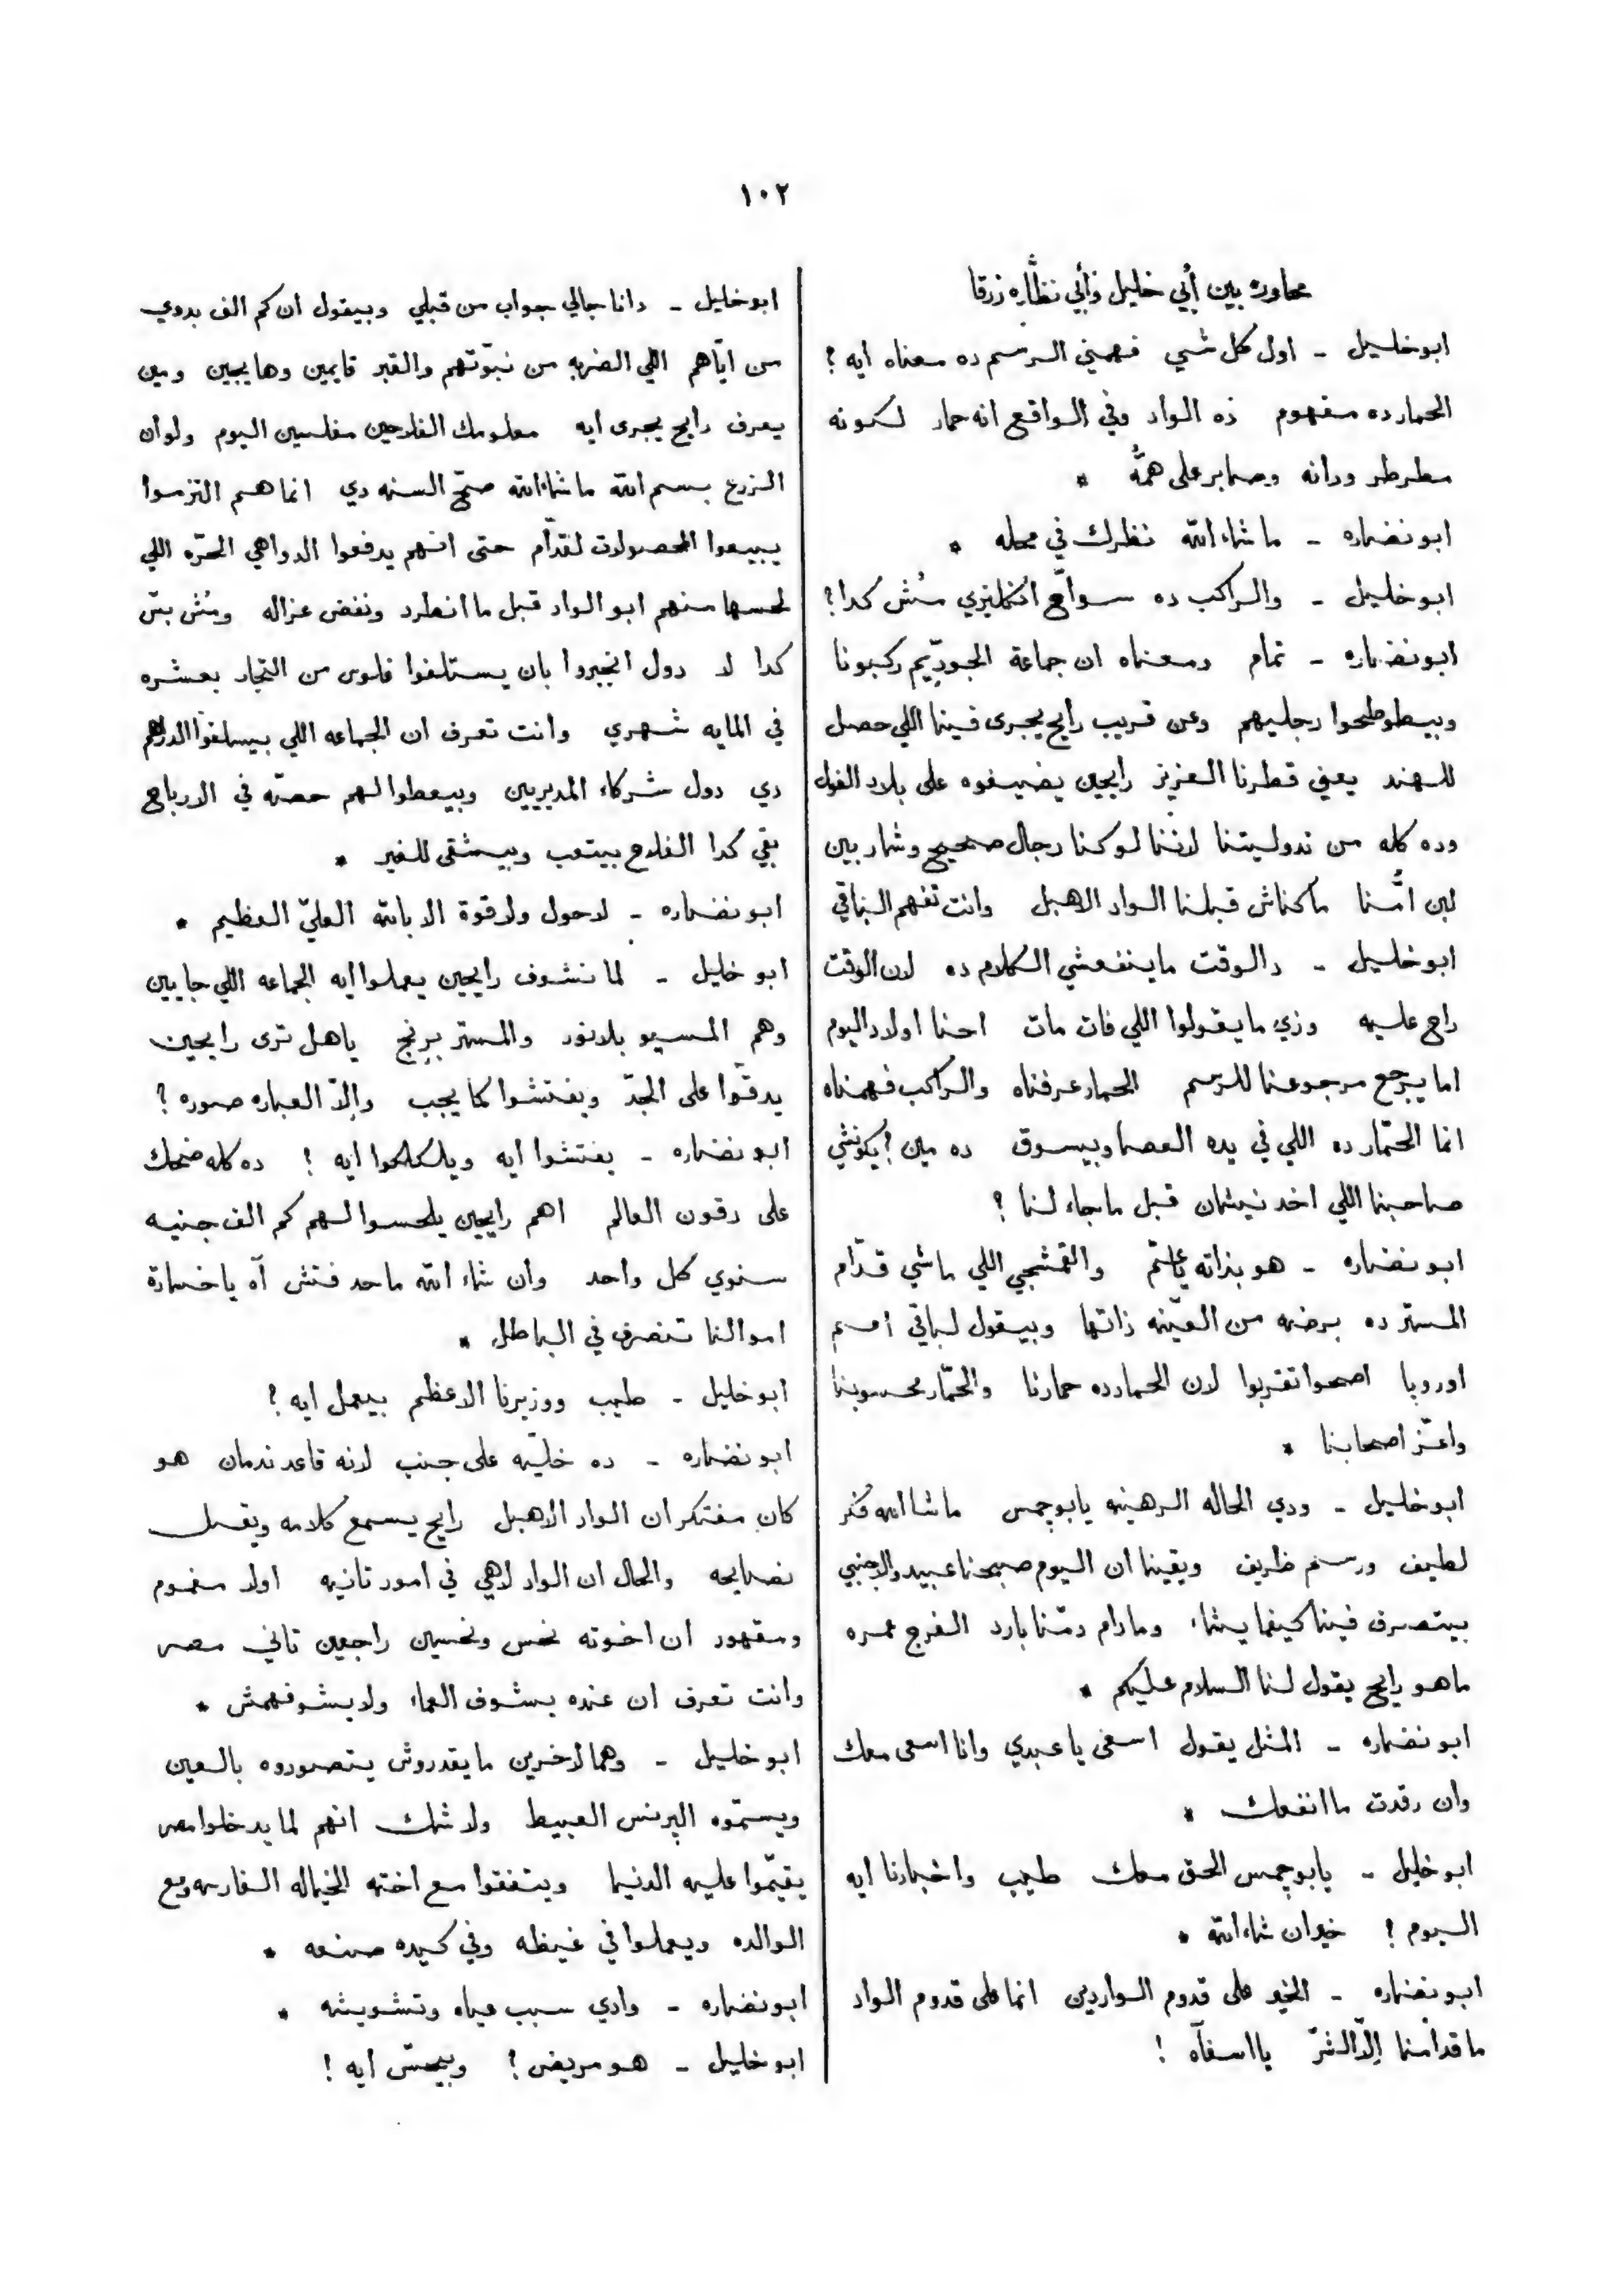 ١٠٢
محاوره بين أبي خليل وأبي نظّاره زرقا
ابوخليل - اول كل شي فهمني الرسم ده معناه ايه ؟
الحمار ده مفهوم ده الواد وفي الواقع انه حمار لكونه
مطرطر ودانه وصابر على همّه *
ابو نضاره - ماشاء الله نظرك في محله *
ابوخليل - والراكب ده سوّاح انكليزي مُش كدا؟
ابونضاره - تمام ومعناه ان جماعة الجودّيم ركبونا
وبيطوطحوا رجليهم وعن قريب رايح يجرى فينا اللي حصل
للهند يعني قطرنا العزيز رايحين يضيفوه على بلاد الغول
وده كله من ندوليتنا لاننا لو كنا رجال صحيح وشاربين
لبن امّنا ماكناش قبلنا الواد الاهبل وانت تفهم الباقي
ابوخليل - دالوقت ماينفعشي الكلام ده لان الوقت
راح عليه وزي مايقولوا اللي فات مات احنا اولاد اليوم
اما يرجع مرجوعنا للرسم الحمار عرفناه والراكب فهمناه
انما الحمّار ده اللي في يده العصا وبيسوق ده مين ؟ يكونشي
صاحبنا اللي اخد نيشان قبل ما جاء لنا ؟
ابو نضاره - هو بذاته ياعمّ والقمشجي اللي ماشي قدّام
المستر ده برضه من العيّنه ذاتها وبيقول لباقي امم
اوروبا اصحوا تقربوا لان الحمار ده حمارنا والحمّار محسوبنا
واعزّ اصحابنا *
ابو خليل - ودي الحاله الرهينه يابوجمس ماشا الله فكر
لطيف ورسم ظريف ويقينا ان اليوم صبحنا عبيد والاجنبي
بيتصرف فينا كيفما يشاء ومادام دمّنا بارد الفرج عمره
ماهو رايح يقول لنا السلام عليكم *
ابو نضاره - المثل يقول اسعى يا عبدي وانا اسعى معك
وان رقدت ما انفعك *
ابوخليل - يابوجمس الحق معك طيب واخبارنا ايه
اليوم ؟ خير ان شاء الله *
ابو نضاره - الخير على قدوم الواردين انما على قدوم الواد
ما قدامنا إلاّ الشرّ يا اسفآه !
ابوخليل - دانا جالي جواب من قبلي وبيقول ان كم الف بدوي
من ايّاهم اللي الضربه من نبّوتهم والقبر قايمين وهايجين ومين
يعرف رايح يجرى ايه معلومك الفلاحين مفلسين اليوم ولو ان
الزرع بسم الله ماشاء الله صحّ السنه دي انما هم التزموا
يبيعوا المحصولات لقدّام حتى انهم يدفعوا الدواهي الحرّه اللي
لحسها منهم ابو الواد قبل ما انطرد ونفض عزاله ومُش بسّ
كدا لا دول انجبروا بان يستلفوا فلوس من التجار بعشره
في المايه شهري وانت تعرف ان الجماعه اللي بيسلفوا الدراهم
دي دول شركاء المديريين وبيعطوا لهم حصّه في الارباح
بقي كدا الفلاح بيتعب ويبشقى للغير *
ابو نضاره - لاحول ولا قوة الا بالله العليّ العظيم *
ابو خليل - لما نشوف رايحين يعملوا ايه الجماعه اللي جايين
وهم المسيو بلانور والمستر برنج ياهل ترى رايحين
يدقّوا على الجدّ ويفتشوا كما يجب وإلاّ العباره صوره ؟
ابو نضاره - يفتشوا ايه ويلكلكوا ايه ! ده كله ضحك
على دقون العالم اهم رايحين يلحسوا لهم كم الف جنيه
سنوي كل واحد وان شاء الله ماحد فتش آه ياخسارة
اموالنا تنصرف في الباطل *
ابوخليل - طيب ووزيرنا الاعظم بيعمل ايه ؟
ابو نضاره - ده خليّه على جنب لانه قاعد ندمان هو
كان مفتكر ان الواد الاهبل رايح يسمع كلامه ويقبل
نصايحه والحال ان الواد لاهي في امور تانيه اولا مغموم
ومقهور ان اخوته نحس ونحسين راجعين تاني مصر
وانت تعرف ان عنده يشوف العماء ولا يشوفهمش *
ابو خليل - وهما لاخرين مايقدروش يتصوروه بالعين
ويسمّوه البرنس العبيط ولا شك انهم لما يدخلوا مصر
يقيّموا عليه الدنيا ويتفقوا مع اخته الخياله الفارسه ومع
الوالده ويعملوا في غيظه وفي كيده صنعه *
ابو نضاره - وادي سبب عياه وتشويشه *
ابو خليل - هو مريض ! وبيحسّ ايه !